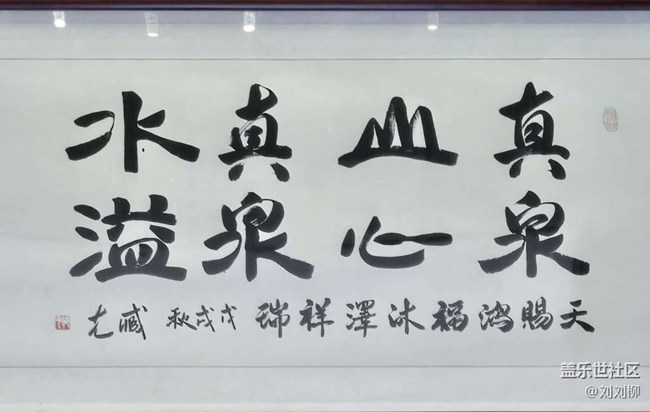 真泉
山心
真泉
水溢
天賜鸿福沐澤祥瑞 戊戌秋 臧
盖乐世社区
@刘刘柳